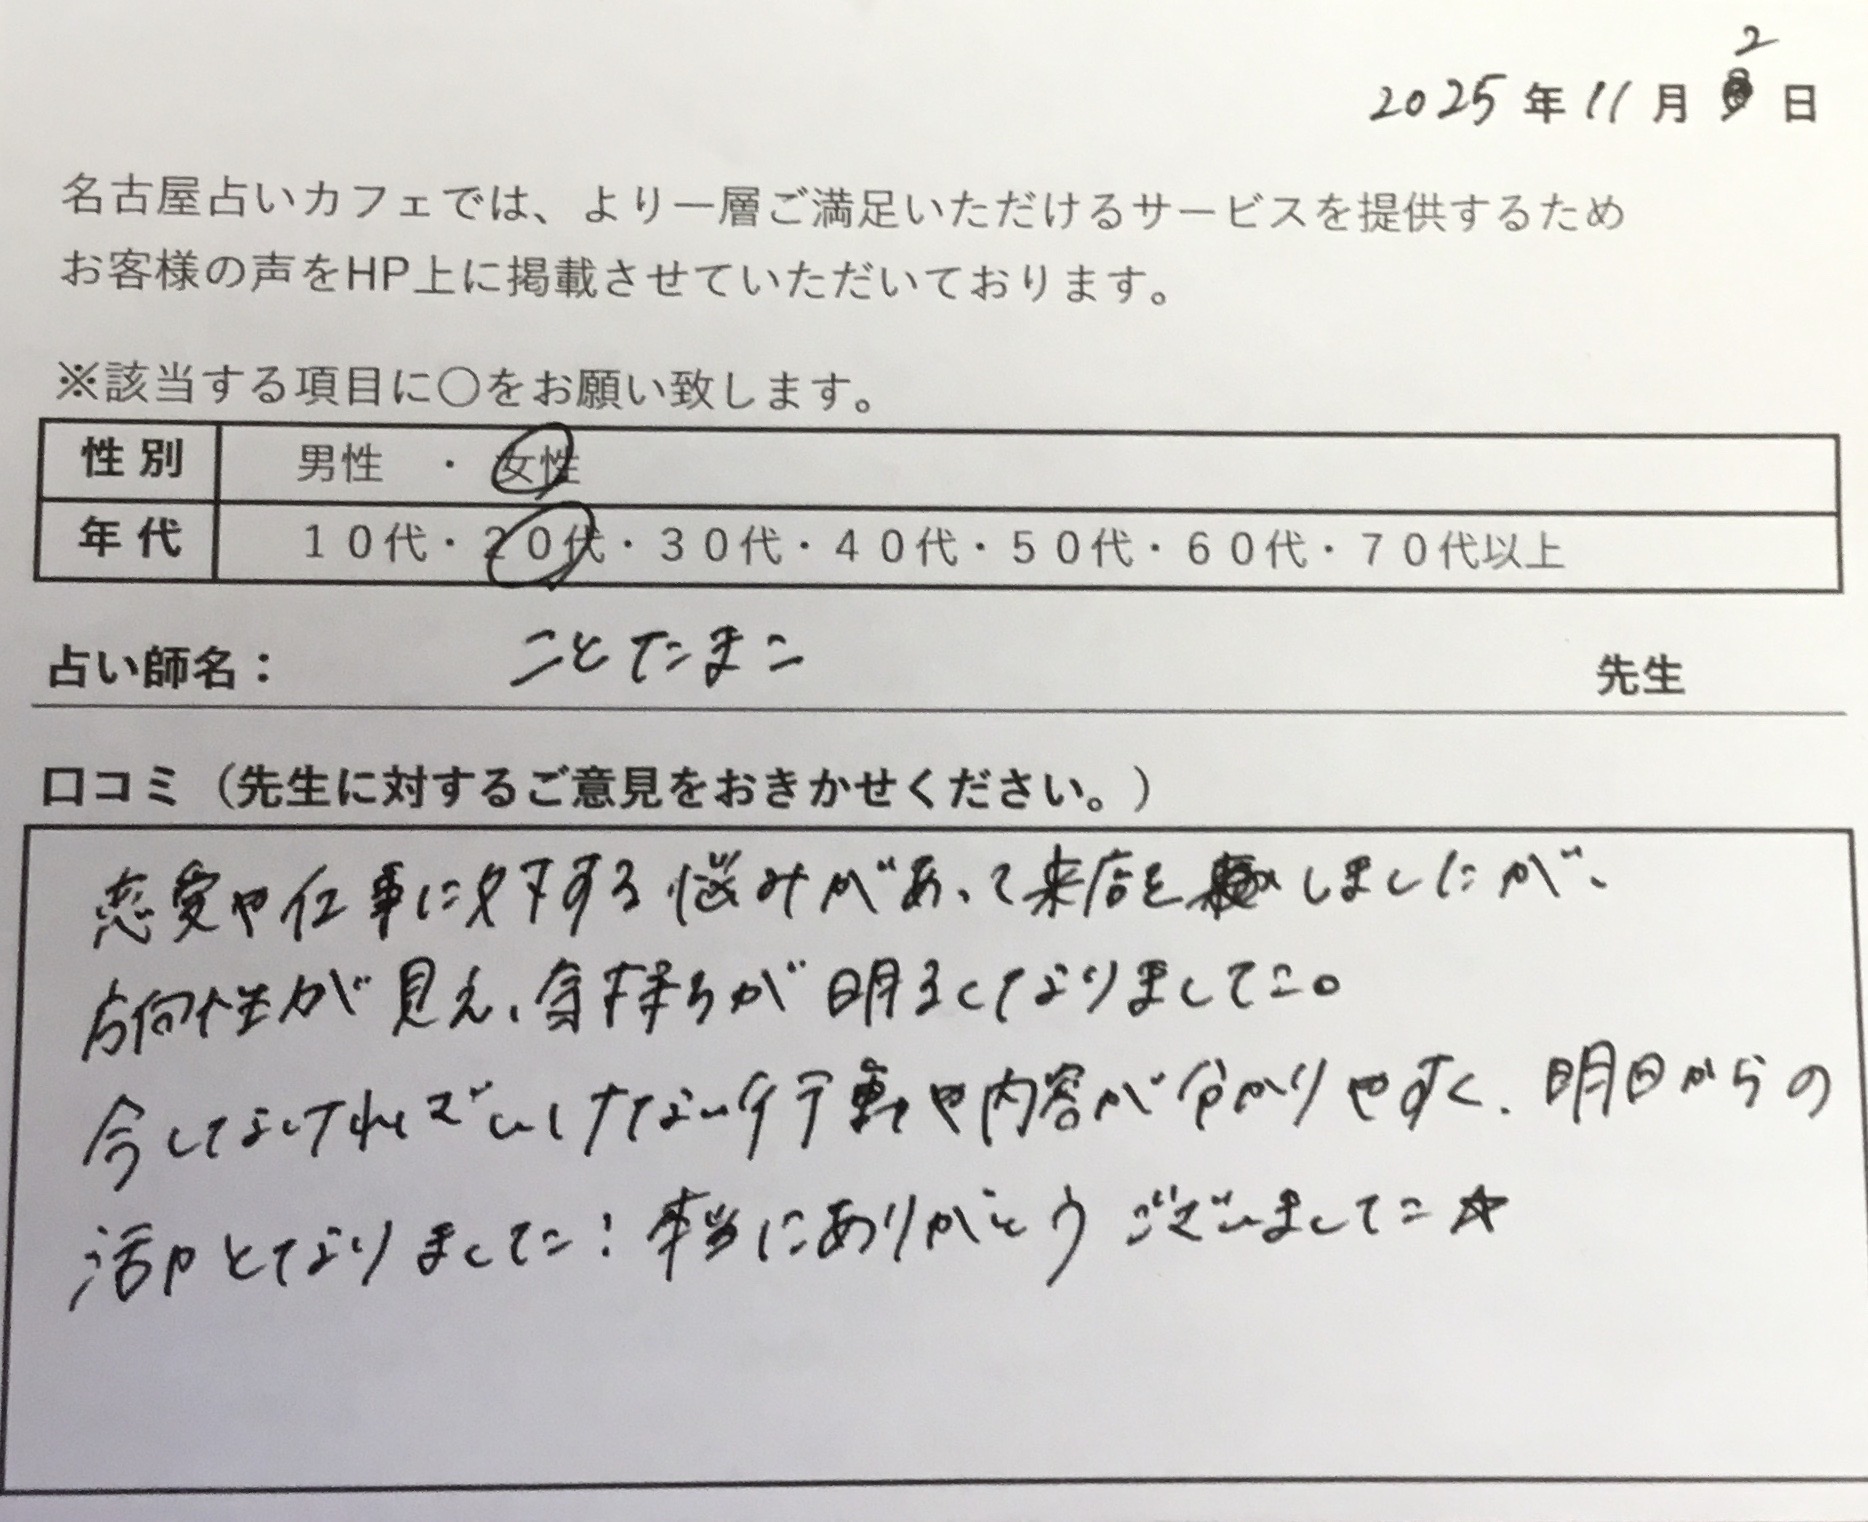 2025年11月2日
名古屋占いカフェでは、より一層ご満足いただけるサービスを提供するため
お客様の声をHP上に掲載させていただいております。
※該当する項目に〇をお願い致します。
性別 男性 ・ 女性
年代 10代・20代・30代・40代・50代・60代・70代以上
占い師名： ことたまこ 先生
口コミ（先生に対するご意見をおきかせください。）
恋愛や仕事に対する悩みがあって来店をしましたが、
方向性が見え、気持ちが明るくなりました。
今しなければいけない行動や内容が分かりやすく、明日からの
活力となりました！本当にありがとうございました☆